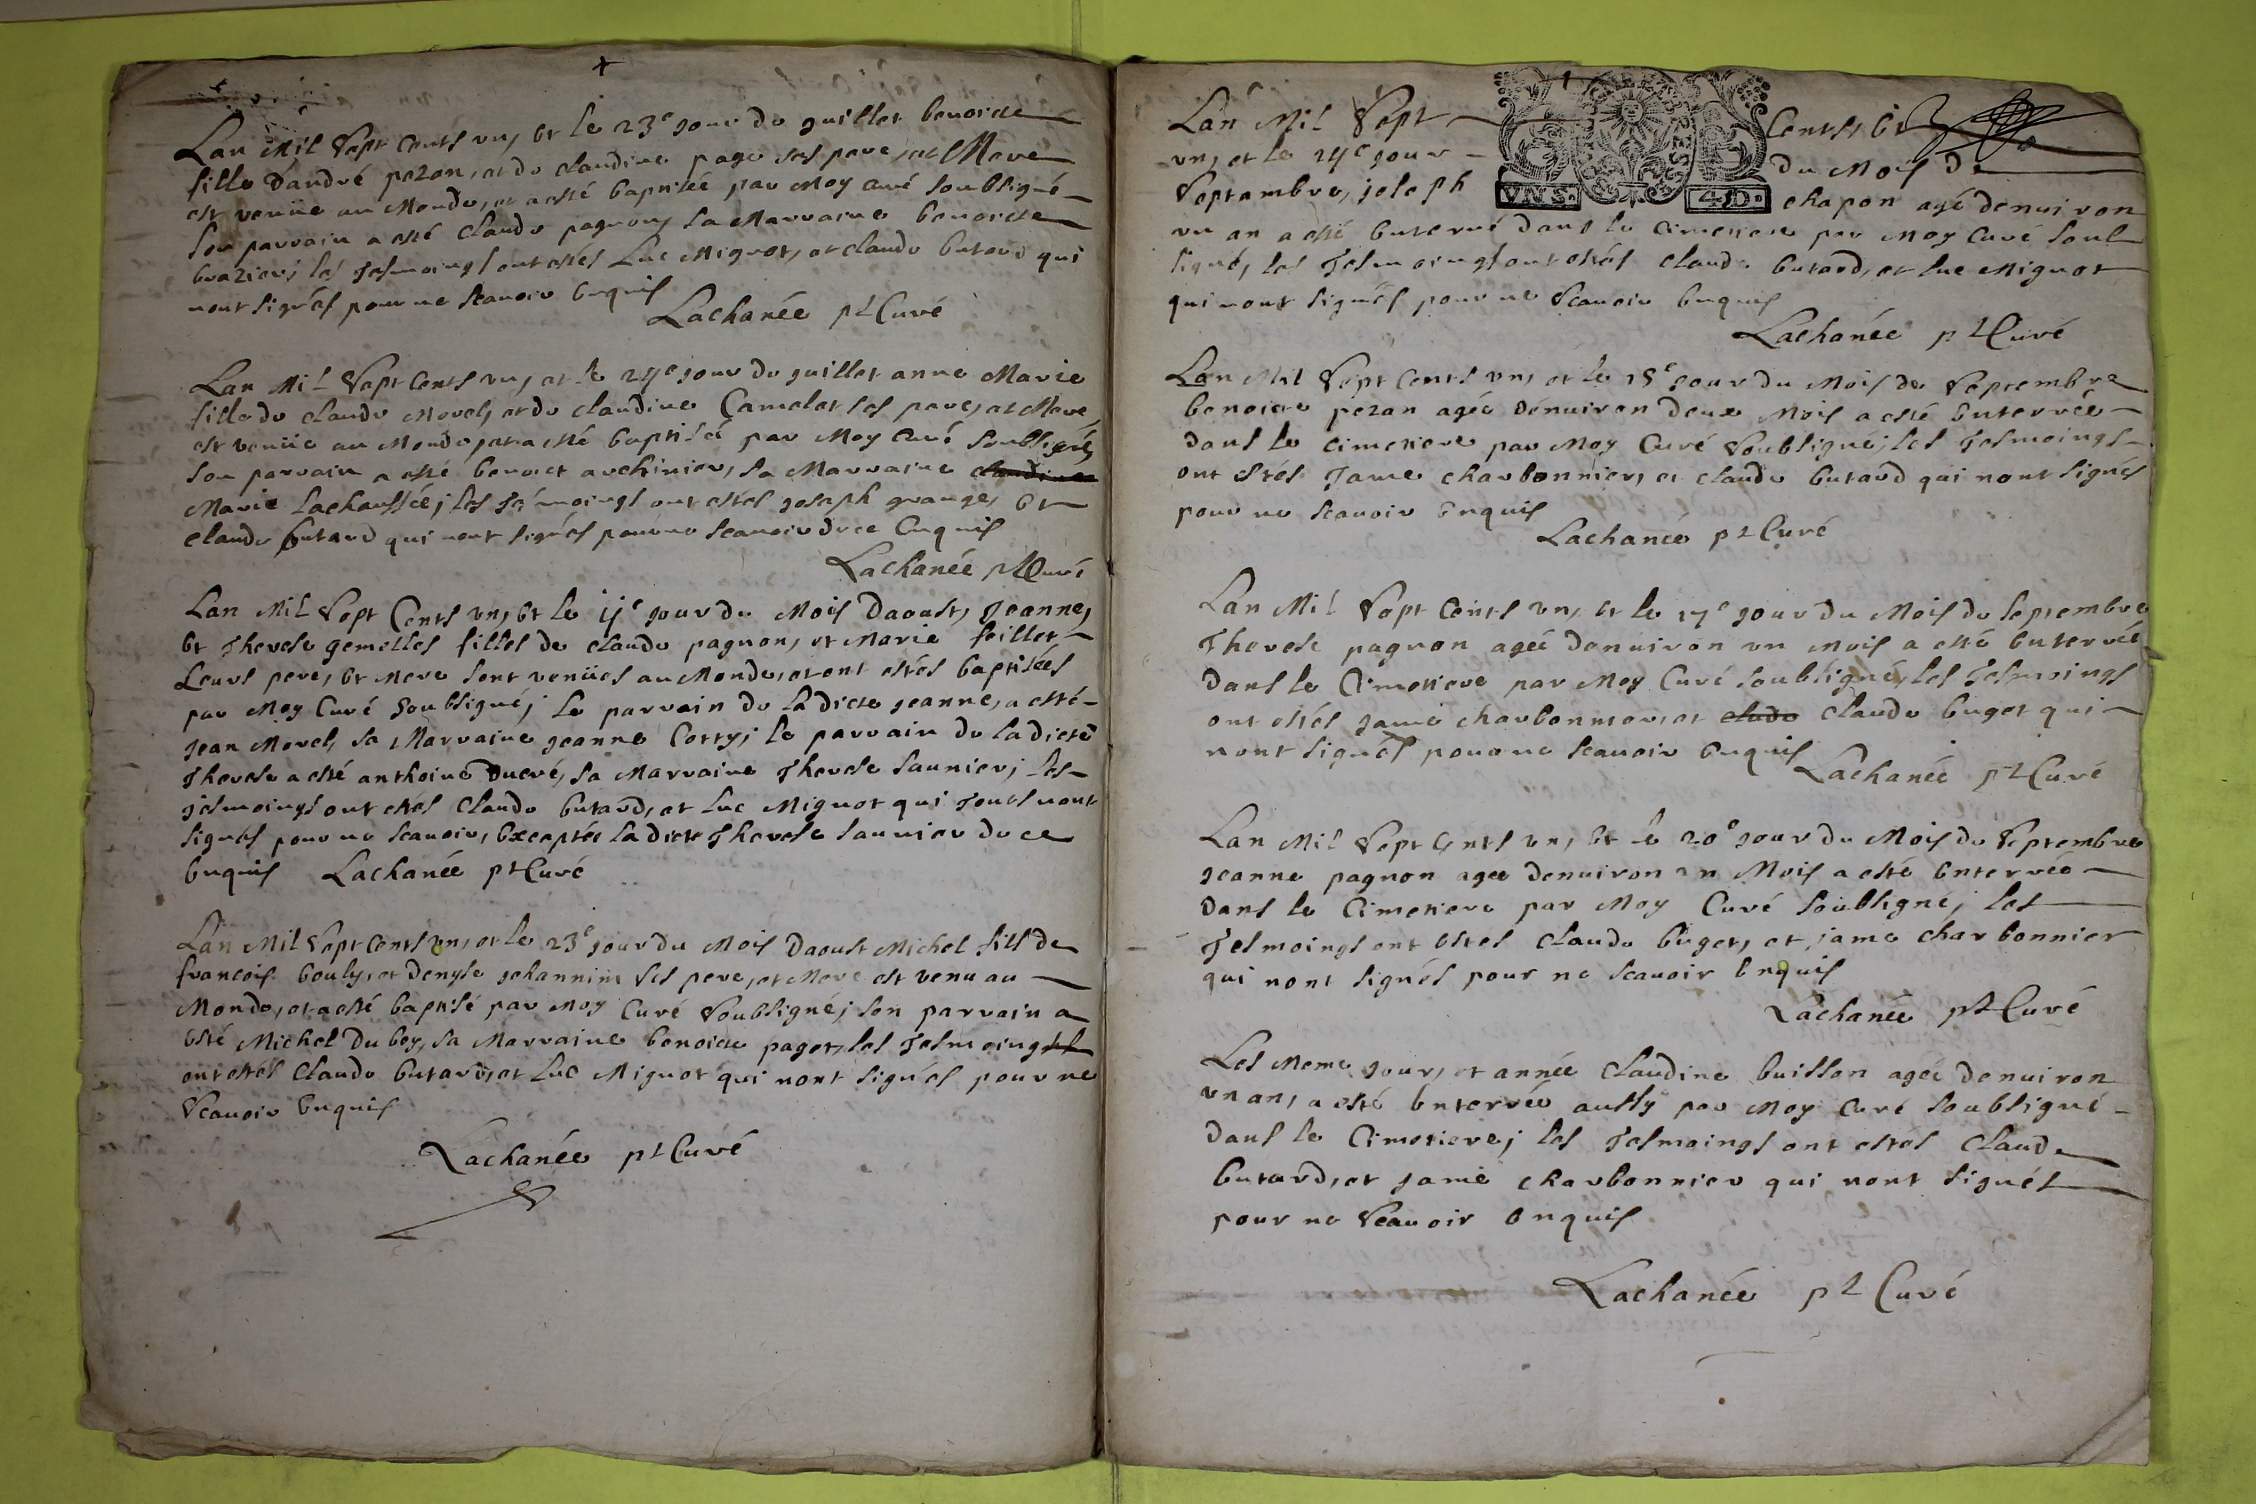 Lan Mil Sept Cents vn, et le 23e jour de juillet benoicte
fille d'andré pezon, et de claudine page ses pere, et Mere
est venüe au Monde, et a esté baptisée par Moy curé soubsigné
son parrain a esté claude pagnon, sa Marraine benoicte
brazier; les tesmoings ont estés Luc Mignot, et claude butard qui
nont signés pour ne scauoir enquis
Lachanée ptre Curé
Lan Mil Sept Cents vn, et le 24e jour de juillet anne Marie
fille de claude Morel, et de claudine Camelat ses pere, et Mere,
est venüe au Monde, et a esté baptisée par Moy Curé soubsigné,
son parrain a esté benoict archinier, sa Marraine claudine
Marie lachaussée; les tesmoings ont estes joseph grange, et
claude butard qui nont signés pour ne scauoir de ce Enquis
Lachanée ptre Curé
Lan Mil Sept Cents vn, et le ije jour du Mois Daoust, Jeanne,
et Therese gemelles filles de claude pagnon, et Marie feillet
Leurs pere, et Mere sont venües au Monde, et ont estés baptisées
par Moy Curé Soubsigné; le parrain de la dicte jeanne, a esté
jean Morel, sa Marraine jeanne Corry; le parrain de la dicte
Therese a esté anthoine Ducré, sa Marraine Therese saunier; les
tesmoings ont estés claude butard, et luc Mignot qui tous nont
signés pour ne scauoir, exceptée la dicte Therese saunier de ce
enquis Lachanée ptre Curé
Lan Mil Sept Cents vn, et le 23e jour du Mois Daoust Michel fils de
francois bouly, et denyse johannin ses pere, et Mere est venu au
Monde, et a esté baptisé par Moy Curé Soubsigné; son parrain a
esté Michel Du boy, sa Marraine benoicte paget, les tesmoings
ont estés claude butard, et luc Mignot qui nont signés pour ne
Scauoir enquis
Lachanée ptre Curé
Lan Mil Sept Cents, et
vn, et le 14e jour du Mois de
Septembre, joseph chapon agé denuiron
vn an a esté enterré dans le Cimetiere par Moy Curé soub
signé, les tesmoings ont estés claude butard, et luc Mignot
qui nont signés pour ne scauoir enquis
Lachanée ptre Curé
VN.S. 4.D.
Lan Mil Sept Cents vn, et le 15e jour du Mois de Septembre
benoicte pezan agée denuiron deux Mois a esté enterrée
dans le cimetiere par Moy Curé Soubsigné; les tesmoings
ont estés Jame charbonnier, et claude butard qui nont signés
pour ne scauoir enquis
Lachanée ptre Curé
Lan Mil Sept Cents vn, et le 17e jour du Mois de septembre
Therese pagnon agée denuiron vn Mois a esté enterrée
dans le Cimetiere par Moy Curé soubsigné, les tesmoings
ont estés jame charbonnier, et clude claude buget qui
nont signés pour ne scauoir enquis
Lachanée ptre Curé
Lan Mil Sept Cents vn, et le 20e jour du Mois de Septembre
jeanne pagnon agee denuiron vn Mois a esté enterrée
dans le Cimetiere par Moy Curé soubsigné; les
tesmoings ont estes claude buget, et jame charbonnier
qui nont signés pour ne scauoir enquis
Lachanée ptre Curé
Les Meme jour, et année claudine buisson agée denuiron
vn an, a esté enterrée aussy par Moy Curé soubsigné
dans le Cimetiere; les tesmoings ont estés claude
butard, et jame charbonnier qui nont signés
pour ne Scauoir enquis
Lachanée ptre Curé